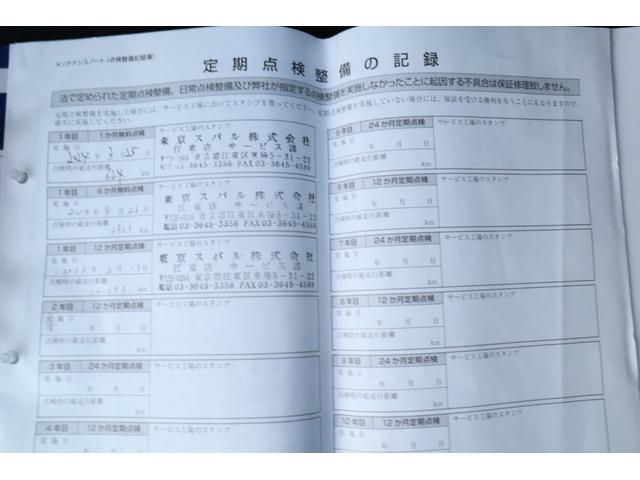 メンテナンスノート(点検整備記録簿)
定期点検整備の記録
法で定められた定期点検整備、日常点検整備及び弊社が指定する点検整備を実施しなかったことに起因する不具合は保証修理致しません。
定期点検整備を実施した場合には、サービス工場においてスタンプを貰ってください。定期点検整備を実施していない場合には、保証を受ける権利を失うこともありますので、
確実に実施してください。
1年目 1か月無料点検 サービス工場のスタンプ
実施日
2024年3月25日
点検時の総走行距離
824 km
東京スバル株式会社
江東店 サービス課
東京都江東区東陽5-31-22
電話03-3645-3356 FAX03-3645-4589
1年目 6か月無料点検 サービス工場のスタンプ
実施日
2024年8月26日
点検時の総走行距離
km
東京スバル株式会社
江東店 サービス課
東京都江東区東陽5-31-22
電話03-3645-3356 FAX03-3645-4589
1年目 12か月定期点検 サービス工場のスタンプ
実施日
2025年2月13日
点検時の総走行距離
km
東京スバル株式会社
江東店 サービス課
東京都江東区東陽5-31-22
電話03-3645-3356 FAX03-3645-4589
2年目 12か月定期点検 サービス工場のスタンプ
実施日
年 月 日
点検時の総走行距離
km
3年目 24か月定期点検 サービス工場のスタンプ
実施日
年 月 日
点検時の総走行距離
km
4年目 12か月定期点検 サービス工場のスタンプ
実施日
年 月 日
5年目 24か月定期点検 サービス工場のスタンプ
実施日
年 月 日
点検時の総走行距離
km
6年目 12か月定期点検 サービス工場のスタンプ
実施日
年 月 日
点検時の総走行距離
km
7年目 24か月定期点検 サービス工場のスタンプ
実施日
年 月 日
点検時の総走行距離
km
8年目 12か月定期点検 サービス工場のスタンプ
実施日
年 月 日
点検時の総走行距離
km
9年目 24か月定期点検 サービス工場のスタンプ
実施日
年 月 日
点検時の総走行距離
km
10年目 12か月定期点検 サービス工場のスタンプ
実施日
年 月 日